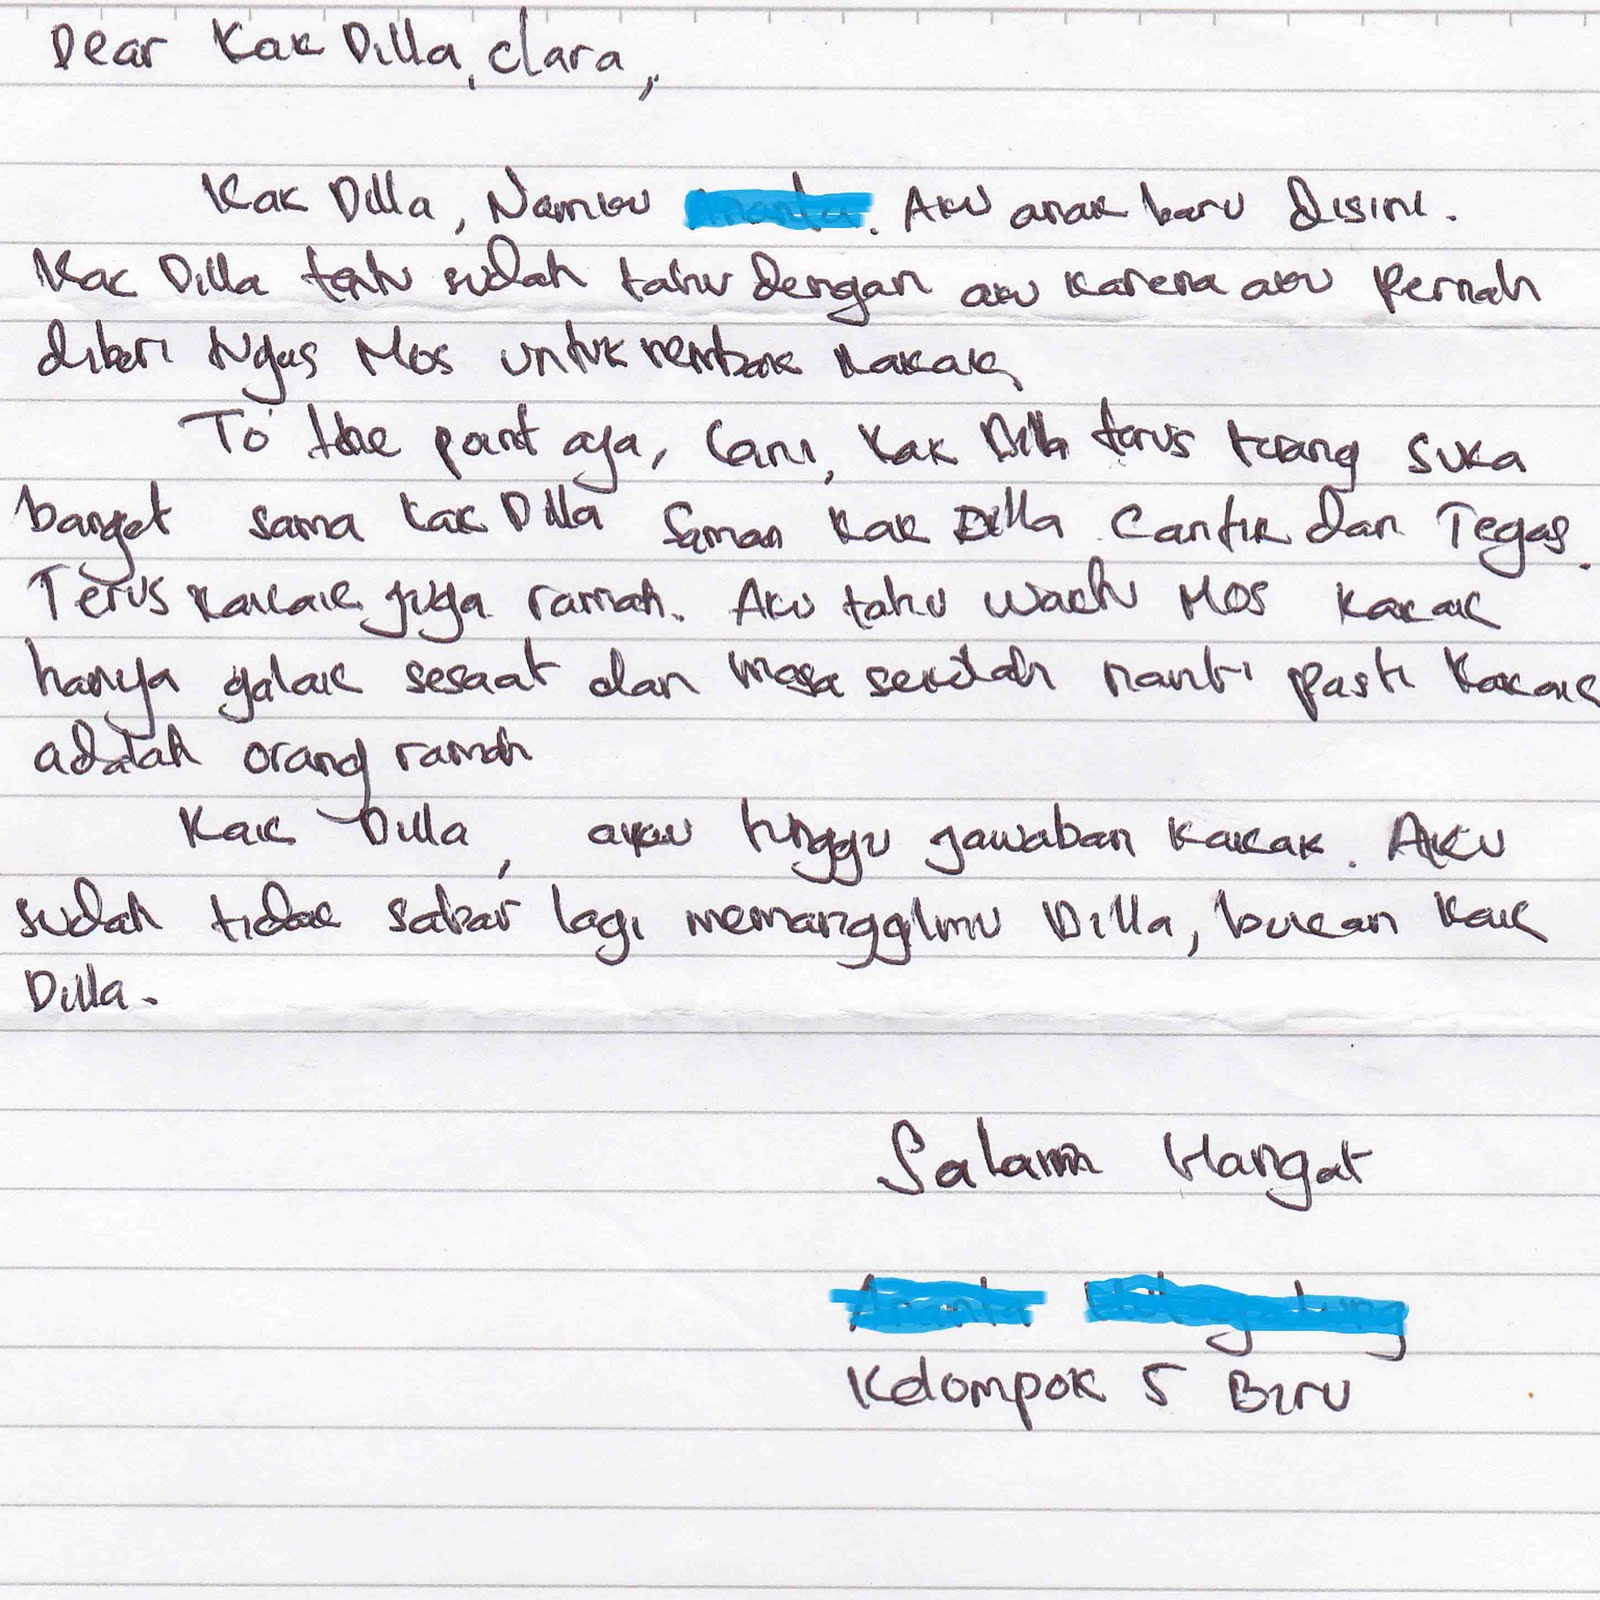 Dear Kak Dilla, Clara,
Kak Dilla, Namku . Aku anak baru disini.
Kak Dilla tentu sudah tahu dengan aku karena aku pernah
diberi tugas Mos untuk nembak kakak,
To the point aja, Kak Dilla terus terang suka
banget sama Kak Dilla Kak Dilla Cantik dan Tegas.
Terus kakak juga ramah. Aku tahu waktu MOS kakak
hanya galak sesaat dan masa sekolah nanti pasti kakak
adalah orang ramah
Kak Dilla, aku tunggu jawaban kakak. Aku
sudah tidak sabar lagi memanggilmu Dilla, bukan Kak
Dilla.
Salam Hangat
Kelompok 5 Biru